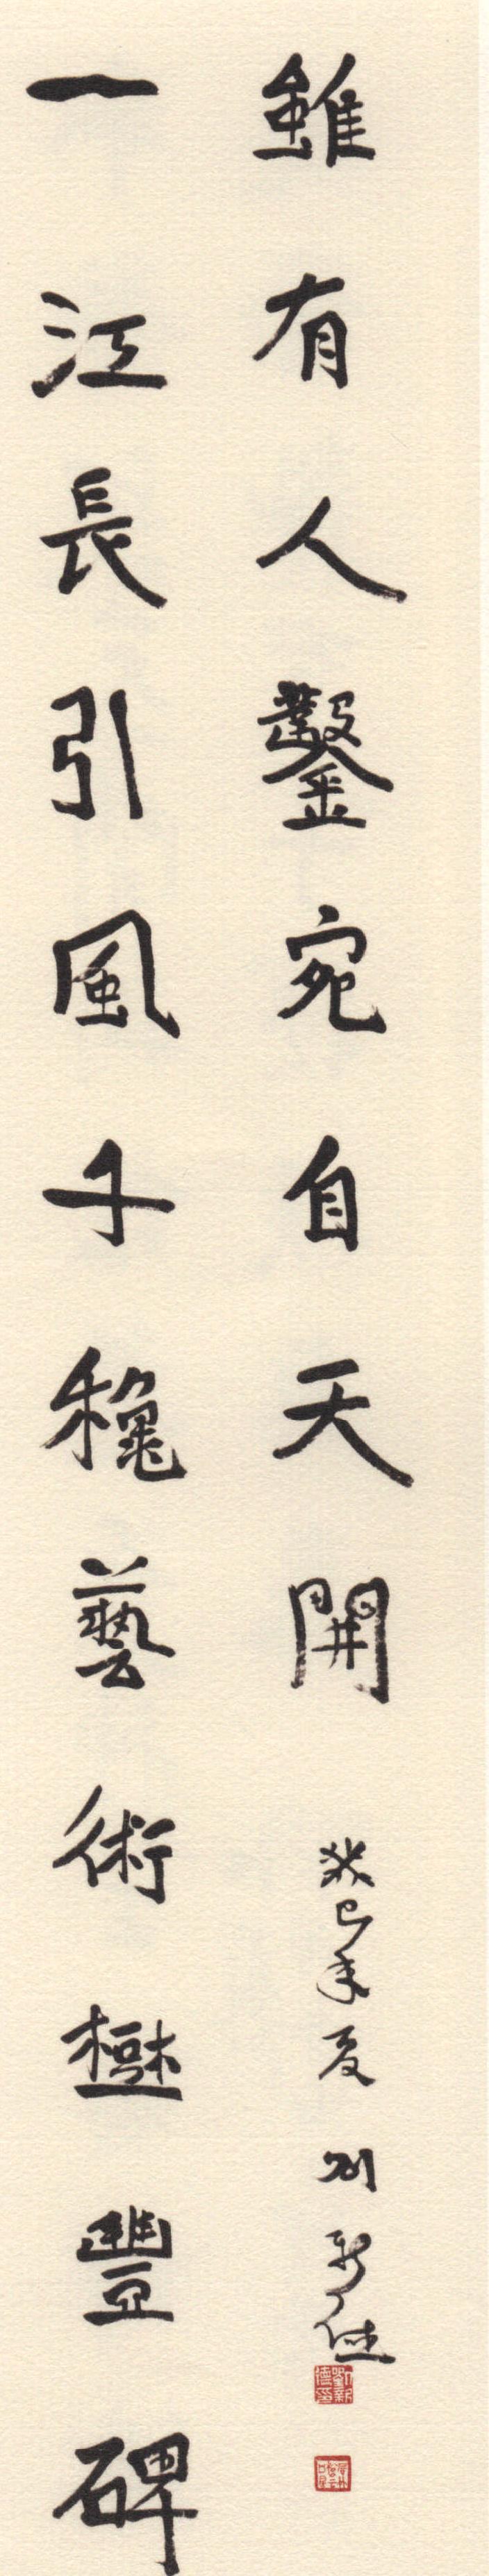 雖有人鑿宛自天開
癸巳年夏 刘新德
劉新德印
一江長引風千穐藝術樹豐碑